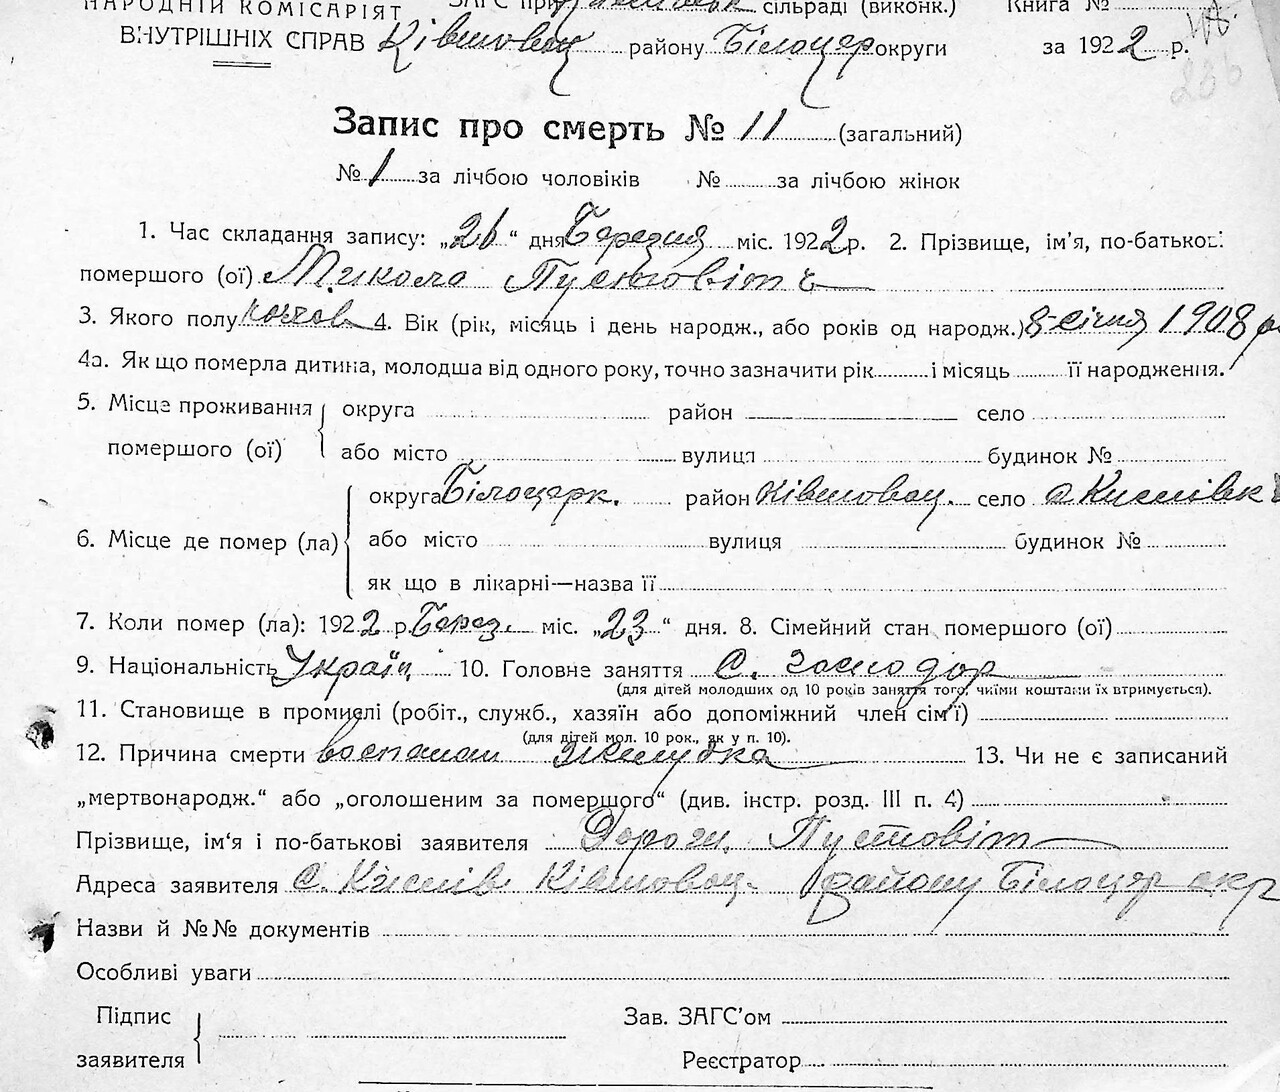 НАРОДНІЙ КОМІСАРІЯТ ЗАГС при сільраді (виконк.) Книга №
ВНУТРІШНІХ СПРАВ Ківшовац району Білоцер округи за 1922 р.
Запис про смерть № 11 (загальний)
№ 1 за лічбою чоловіків № за лічбою жінок
1. Час складання запису: „26“ дня Березня міс. 1922 р. 2. Прізвище, ім’я, по-батькові
помершого (ої) Микола Пустовітъ
3. Якого полу 4. Вік (рік, місяць і день народж., або років од народж.) 8 січня 1908 р
4а. Як що померла дитина, молодша від одного року, точно зазначити рік і місяць її народження.
5. Місце проживання округа район село
помершого (ої) або місто вулиця будинок №
округа Білоцерк. район Ківшовац. село
6. Місце де помер (ла) або місто вулиця будинок №
як що в лікарні—назва її
7. Коли помер (ла): 1922 р. Берез. міс. „23“ дня. 8. Сімейний стан помершого (ої)
9. Національність Україн. 10. Головне заняття С. господар
(для дітей молодших од 10 років заняття того, чиїми коштами їх втримується).
11. Становище в промислі (робіт., служб., хазяїн або допоміжний член сім’ї)
(для дітей мол. 10 рок., як у п. 10).
12. Причина смерти воспален желудка 13. Чи не є записаний
„мертвонародж.“ або „оголошеним за помершого“ (див. інстр. розд. III п. 4)
Прізвище, ім‘я і по-батькові заявителя Пустовіт
Адреса заявителя С. Ківшовац. району Білоцер окр
Назви й №№ документів
Особливі уваги
Підпис Зав. ЗАГС’ом
заявителя Реєстратор